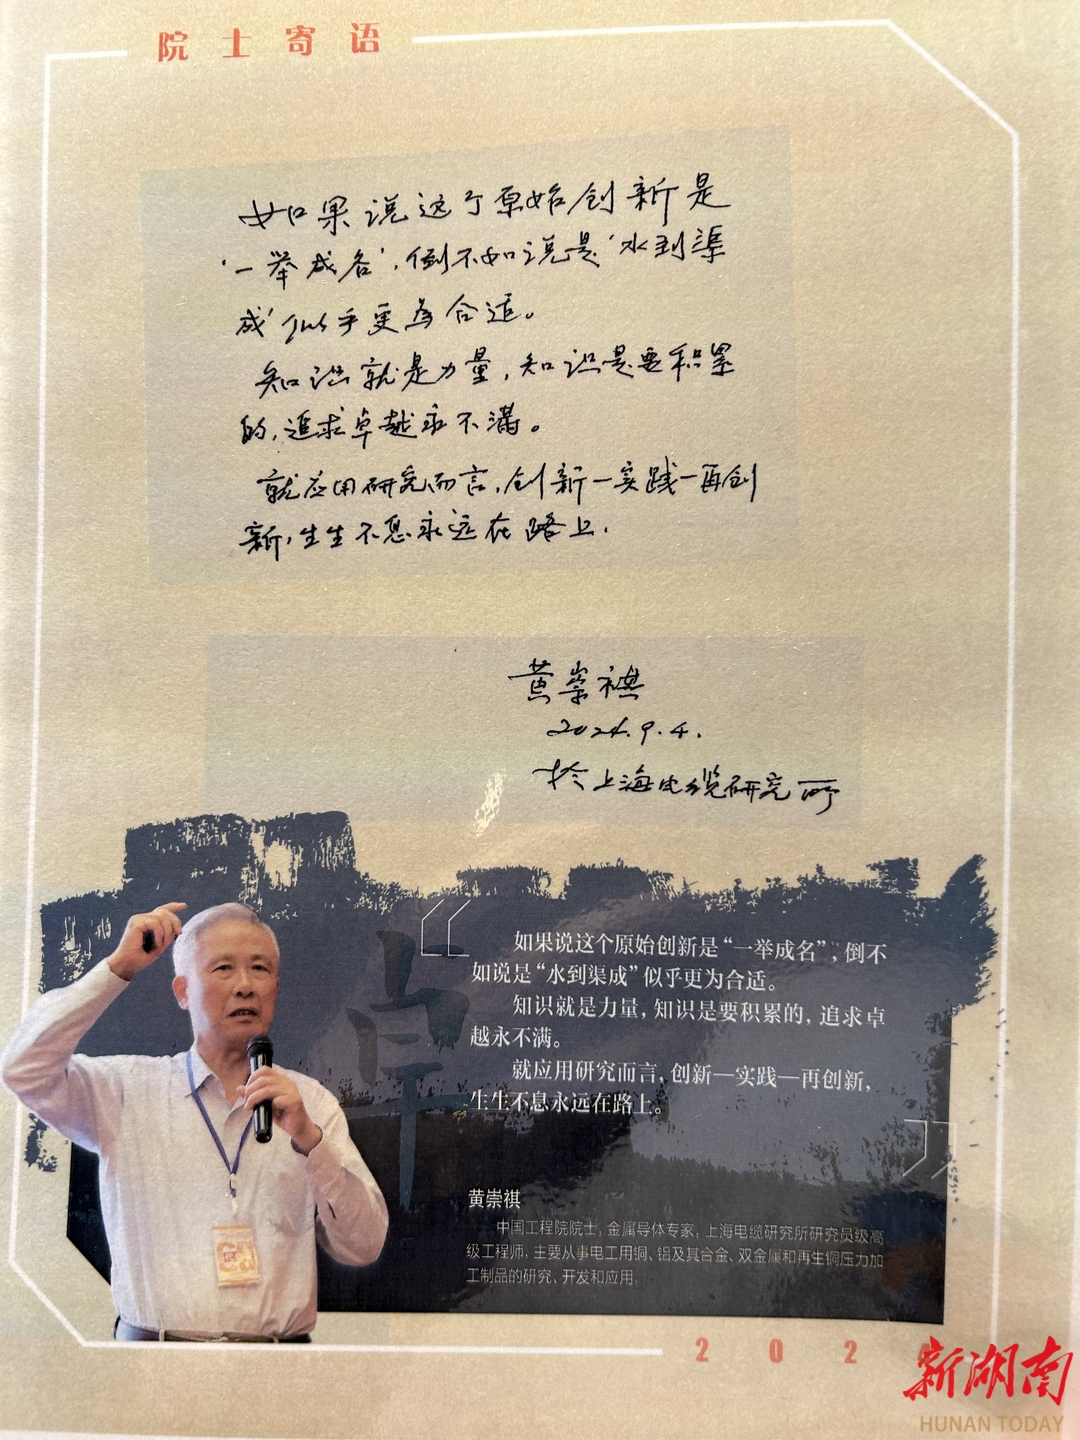 院士寄语
如果说这个原始创新是
'一举成名',倒不如说是'水到渠
成'似乎更为合适。
知识就是力量,知识是要积累
的,追求卓越永不满。
就应用研究而言,创新—实践—再创
新,生生不息永远在路上.
黄崇祺
2024.9.4.
于上海电缆研究所
卓
如果说这个原始创新是“一举成名”,倒不
如说是“水到渠成”似乎更为合适。
知识就是力量,知识是要积累的,追求卓
越永不满。
就应用研究而言,创新—实践—再创新,
生生不息永远在路上。
黄崇祺
中国工程院院士,金属导体专家,上海电缆研究所研究员级高
级工程师,主要从事电工用铜、铝及其合金、双金属和再生铜压力加
工制品的研究、开发和应用
202
新湖南
HUNAN TODAY